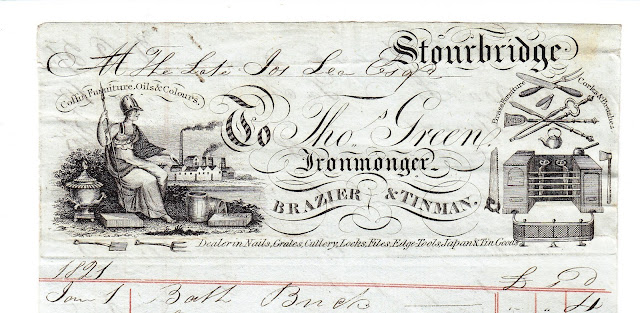 Stourbridge
M The Late Jos Lea Esqr
Coffin Furniture, Oils & Colours.
Brass Furniture
Corks & Bungs &c.
To Thos. Green,
Ironmonger,
BRAZIER & TINMAN,
Dealer in Nails, Grates, Cutlery, Locks, Files, Edge-Tools, Japan & Tin Goods
1821 £ S D
Jany 1 Bath Brick " " 4